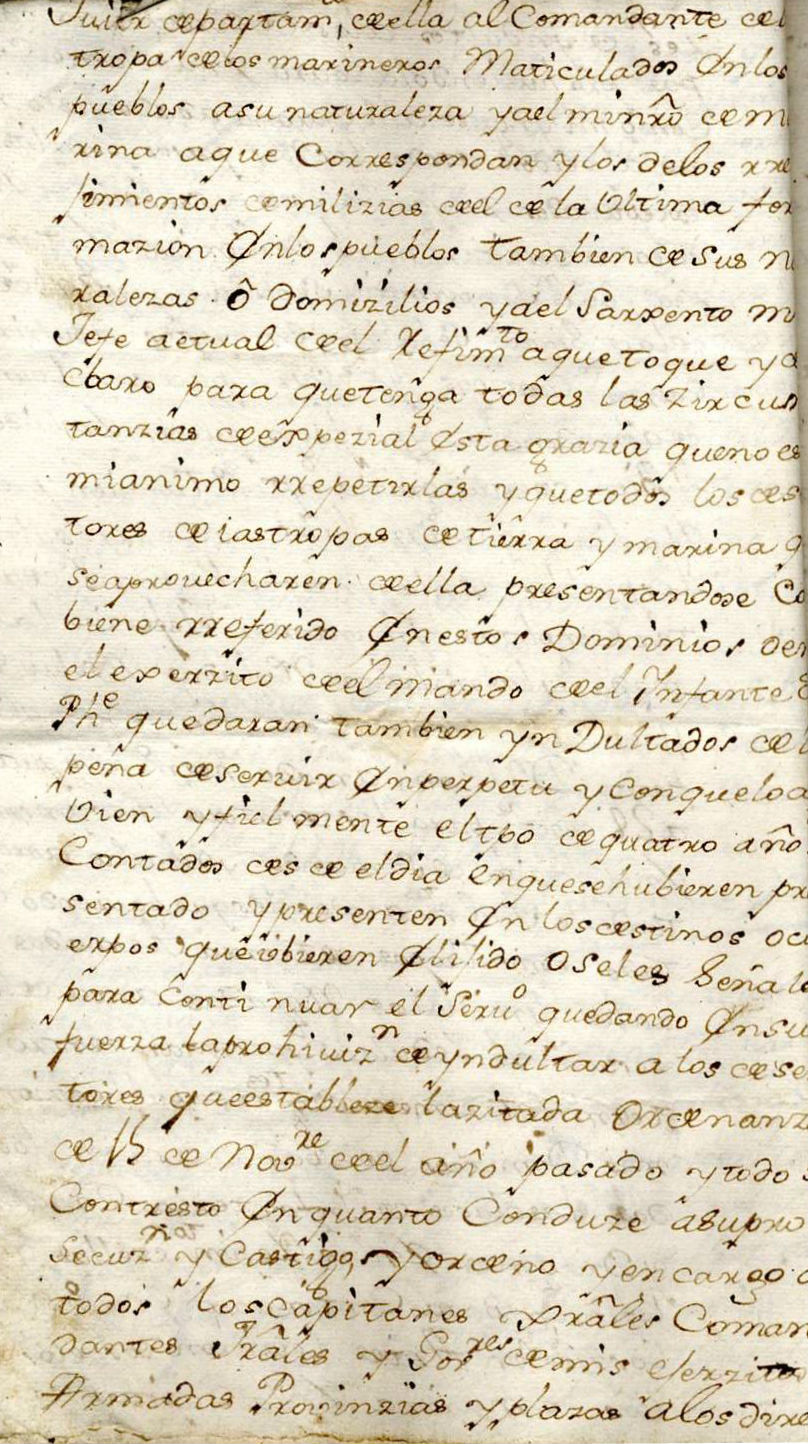 departam, de ella al Comandante del
tropa de los marineros Maticulados En los
pueblos a su naturaleza y a el minrô de m
rina a que Correspondan y los de los rre
simientos de milizias de el de la Ultima for
mazion En los pueblos tambien de sus n
ralezas ô Domizilios y a el Sarxento m
Jefe actual de el Refimto a que toque y
para que tenga todas las Zircuns
tanzias de expezial Esta grazia que no es
mi animo rrepetirlas y que todos los des
tores de las tropas de tierra y marina q
se aprouecharen de ella presentandose Co
biene rreferido En estos Dominios o en
el exerzito de el mando de el Infante
Phe quedaran tambien yn Dultados de l
pena de seruir En perpetu y con que lo a
bien y fiel mente el tpô de quatro año
Contados desde el dia En que se hubieren pr
sentado y presenten En los destinos o cu
erpos que ubieren Elilido o se les Señal
para Conti nuar el Seruo quedando En su
fuerza la prohiuizn de yndultar a los dese
tores que estableze la zitada Ordenanz
de 15 de Novre de el año pasado y todo
Contresto En quanto Conduze a su pro
secuzn y Castigo, y ordeno y encargo
todos los Capitanes xrâles Coman
dantes Jrâles y Gorres de mis Exerzitos
Armadas Provinzias y plazas a los dire